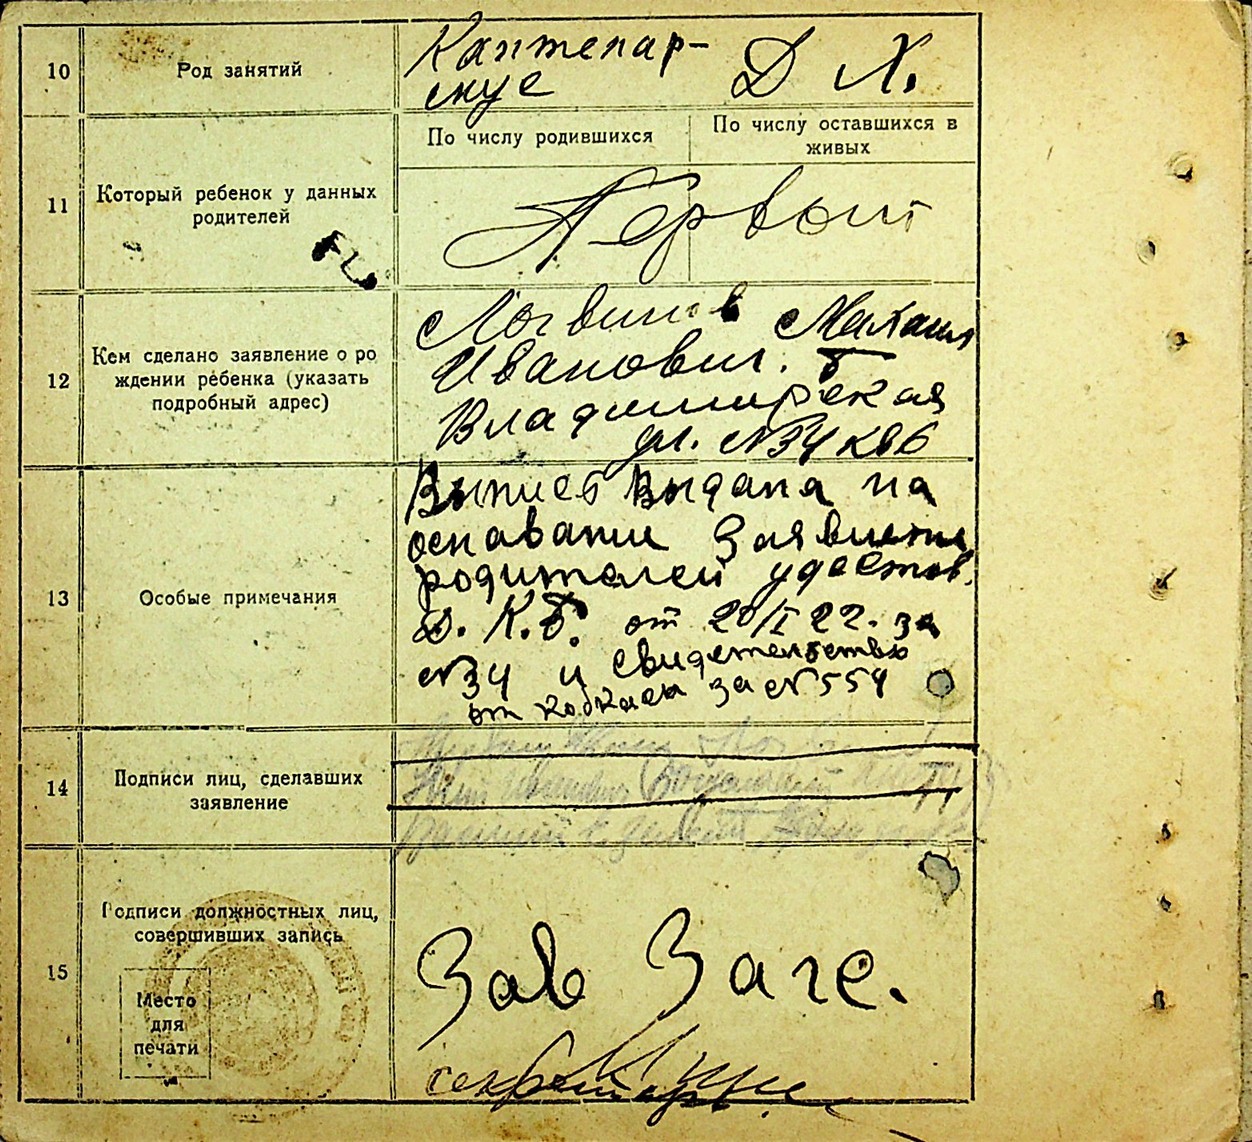 10
Род занятий
Д Х.
11
Который ребенок у данных
родителей
По числу родившихся
По числу оставшихся в
живых
Первый
12
Кем сделано заявление о ро
ждении ребенка (указать
подробный адрес)
Логвинов Михаил
Иванович. Б
Владимирская
ул. №34 кв 6
13
Особые примечания
Выпись выдана на
основании Заявлени
родителей удостов.
К.Б. от 20/I 22. за
№34 и свидетельство
от за №554
14
Подписи лиц, сделавших
заявление
15
Подписи должностных лиц,
совершивших запись
Место
для
печати
Зав Загс.
секретарь